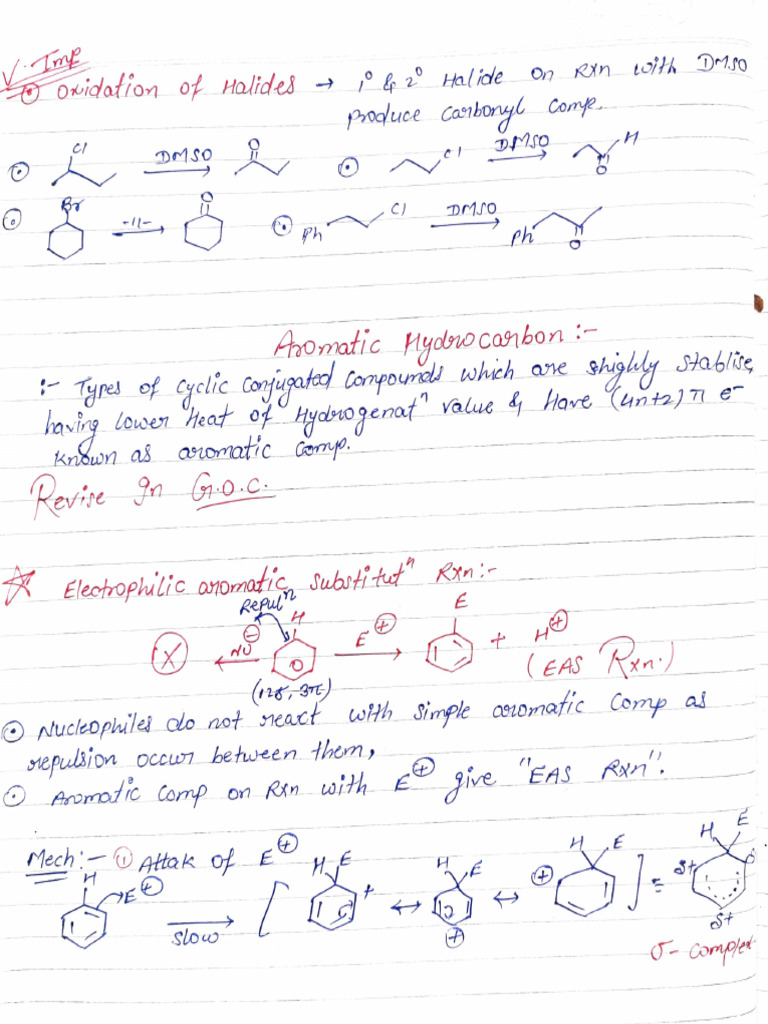 V. Imp
⊙ Oxidation of Halides → 1° & 2° Halide on Rxn with DMSO
produce carbonyl comp.
⊙ Cl DMSO O ⊙ Cl DMSO H O
⊙ Br -11- O ⊙ Ph Cl DMSO Ph O
Aromatic Hydrocarbon :-
:- Types of cyclic conjugated compounds which are highly stablise,
having lower heat of Hydrogenatⁿ value & Have (4n+2) π e⁻
known as aromatic comp.
Revise In G.O.C.
☆ Electrophilic aromatic substitutⁿ Rxn:-
Repulⁿ H E
X NU ⊖ E⊕ + H⊕
(12σ, 3π) (EAS Rxn.)
⊙ Nucleophiles do not react with simple aromatic comp as
repulsion occur between them,
⊙ Aromatic comp on Rxn with E⊕ give "EAS Rxn".
Mech:- ① Attak of E⊕
H E⊕ slow [ H E + ↔ H E ⊕ ↔ ⊕ H E ] ≡ H E δ+ δ+
σ- complex